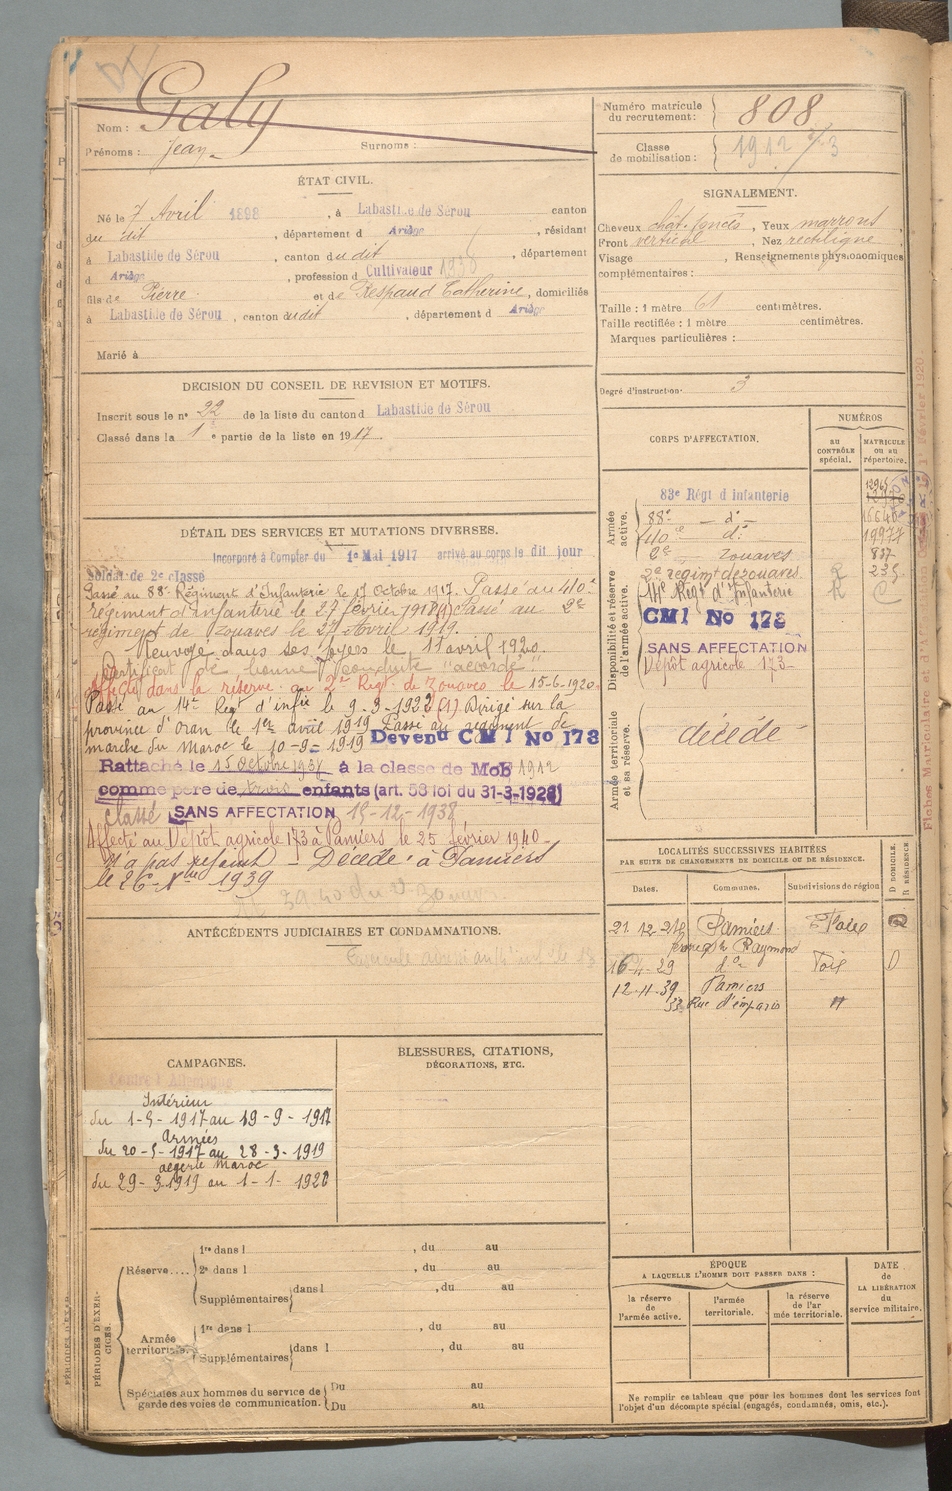 Galy
Nom :
Prénoms : Jean
Surnoms :
Numéro matricule
du recrutement : 808
Classe
de mobilisation : 1912
ÉTAT CIVIL.
Né le 7 Avril 1898, à Labastide de Sérou canton
du dit, département d Ariège, résidant
à Labastide de Sérou, canton du dit, département
d Ariège, profession d Cultivateur
fils de Pierre et de Respaud Catherine, domiciliés
à Labastide de Sérou, canton du dit, département d Ariège
Marié à
SIGNALEMENT.
Cheveux chât. foncés, Yeux marrons,
Front vertical, Nez rectiligne
Visage , Renseignements physionomiques
complémentaires :
Taille : 1 mètre 61 centimètres.
Taille rectifiée : 1 mètre centimètres.
Marques particulières :
Degré d'instruction 3
DECISION DU CONSEIL DE REVISION ET MOTIFS.
Inscrit sous le n° 22 de la liste du canton d Labastide de Sérou
Classé dans la 1e partie de la liste en 1917.
DÉTAIL DES SERVICES ET MUTATIONS DIVERSES.
Incorporé à Compter du 1er Mai 1917 arrivé au corps le dit jour
Soldat de 2e classe
Passé au 88e Régiment d'Infanterie le 17 Octobre 1917. Passé au 40e
régiment d'infanterie le 27 février 1918 (1) Passé au 2e
régiment de Zouaves le 27 Avril 1919.
Renvoyé dans ses foyers le 1 avril 1920.
Certificat de bonne conduite "accordé".
Affecté dans la réserve au 2e Régt de Zouaves le 15-6-1920.
Passé au 14e Régt d'infie le 9-9-1922 (1) Dirigé sur la
province d'Oran le 1er avril 1919 Passé au régiment de
marche du Maroc le 10-9-1919 Devenu CMI No 173
Rattaché le 15 Octobre à la classe de Mob 1912
comme père de trois enfants (art. 58 loi du 31-3-1928)
classé SANS AFFECTATION 15-12-1938
Affecté au Dépôt agricole 173 à Pamiers le 25 février 1940.
N'a pas rejoint – Décédé à Pamiers
le 26 1939
CORPS D'AFFECTATION.
NUMÉROS
AU
CONTRÔLE
spécial.
MATRICULE
ou au
répertoire.
Armée
active.
83e Régt d infanterie
88e — d° — 15640
140e d° 19977
2e Zouaves 837
Disponibilité et réserve
de l'armée active.
2e régimt de zouaves. 235
14e Régt d'Infanterie
CMI No 173
SANS AFFECTATION
Dépôt agricole 173
Armée territoriale
et sa réserve.
décédé
ANTÉCÉDENTS JUDICIAIRES ET CONDAMNATIONS.
LOCALITÉS SUCCESSIVES HABITÉES
PAR SUITE DE CHANGEMENTS DE DOMICILE OU DE RÉSIDENCE.
Dates.
Communes.
Subdivisions de région
D DOMICILE.
R RÉSIDENCE
21 12 Pamiers
Raymond
16-4-29 d° Foix D
12-11-39 Pamiers
33 Rue d'emparis "
CAMPAGNES.
Contre l'Allemagne
Intérieur
du 1-5-1917 au 19-9-1917
Armées
du 20-5-1917 au 28-3-1919
algérie maroc
du 29-3-1919 au 1-1-1920
BLESSURES, CITATIONS,
DÉCORATIONS, ETC.
PÉRIODES D'EXER-
CICES.
Réserve....
1re dans l , du au
2e dans l , du au
Supplémentaires dans l , du au
Armée
territoriale.
1re dans l , du au
Supplémentaires dans l , du au
Spéciales aux hommes du service de
garde des voies de communication.
Du au
Du au
ÉPOQUE
A LAQUELLE L'HOMME DOIT PASSER DANS :
la réserve
de
l'armée active.
l'armée
territoriale.
la réserve
de l'ar
mée territoriale.
DATE
de
LA LIBÉRATION
du
service militaire.
Ne remplir ce tableau que pour les hommes dont les services font
l'objet d'un décompte spécial (engagés, condamnés, omis, etc.).